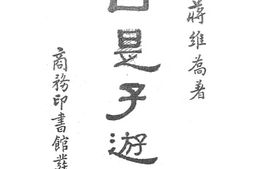 蔣維喬著
是子遊
商務印書館發